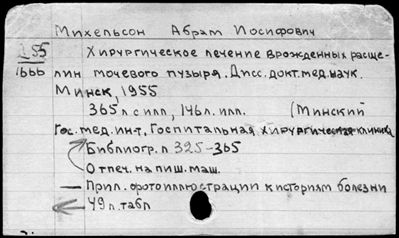 Михельсон Абрам Иосифович
Д55 Хирургическое лечение врожденных расще-
1666 лин мочевого пузыря. Дисс. докт. мед. наук.
Минск, 1955
365 л с илл, 146 л. илл. (Минский
Гос. мед. инт, Госпитальная хирургическая клиника
Библиогр. л 325-365
Отпеч. на пиш. маш.
— Прил. фотоиллюстрации к историям болезни
49 л. табл